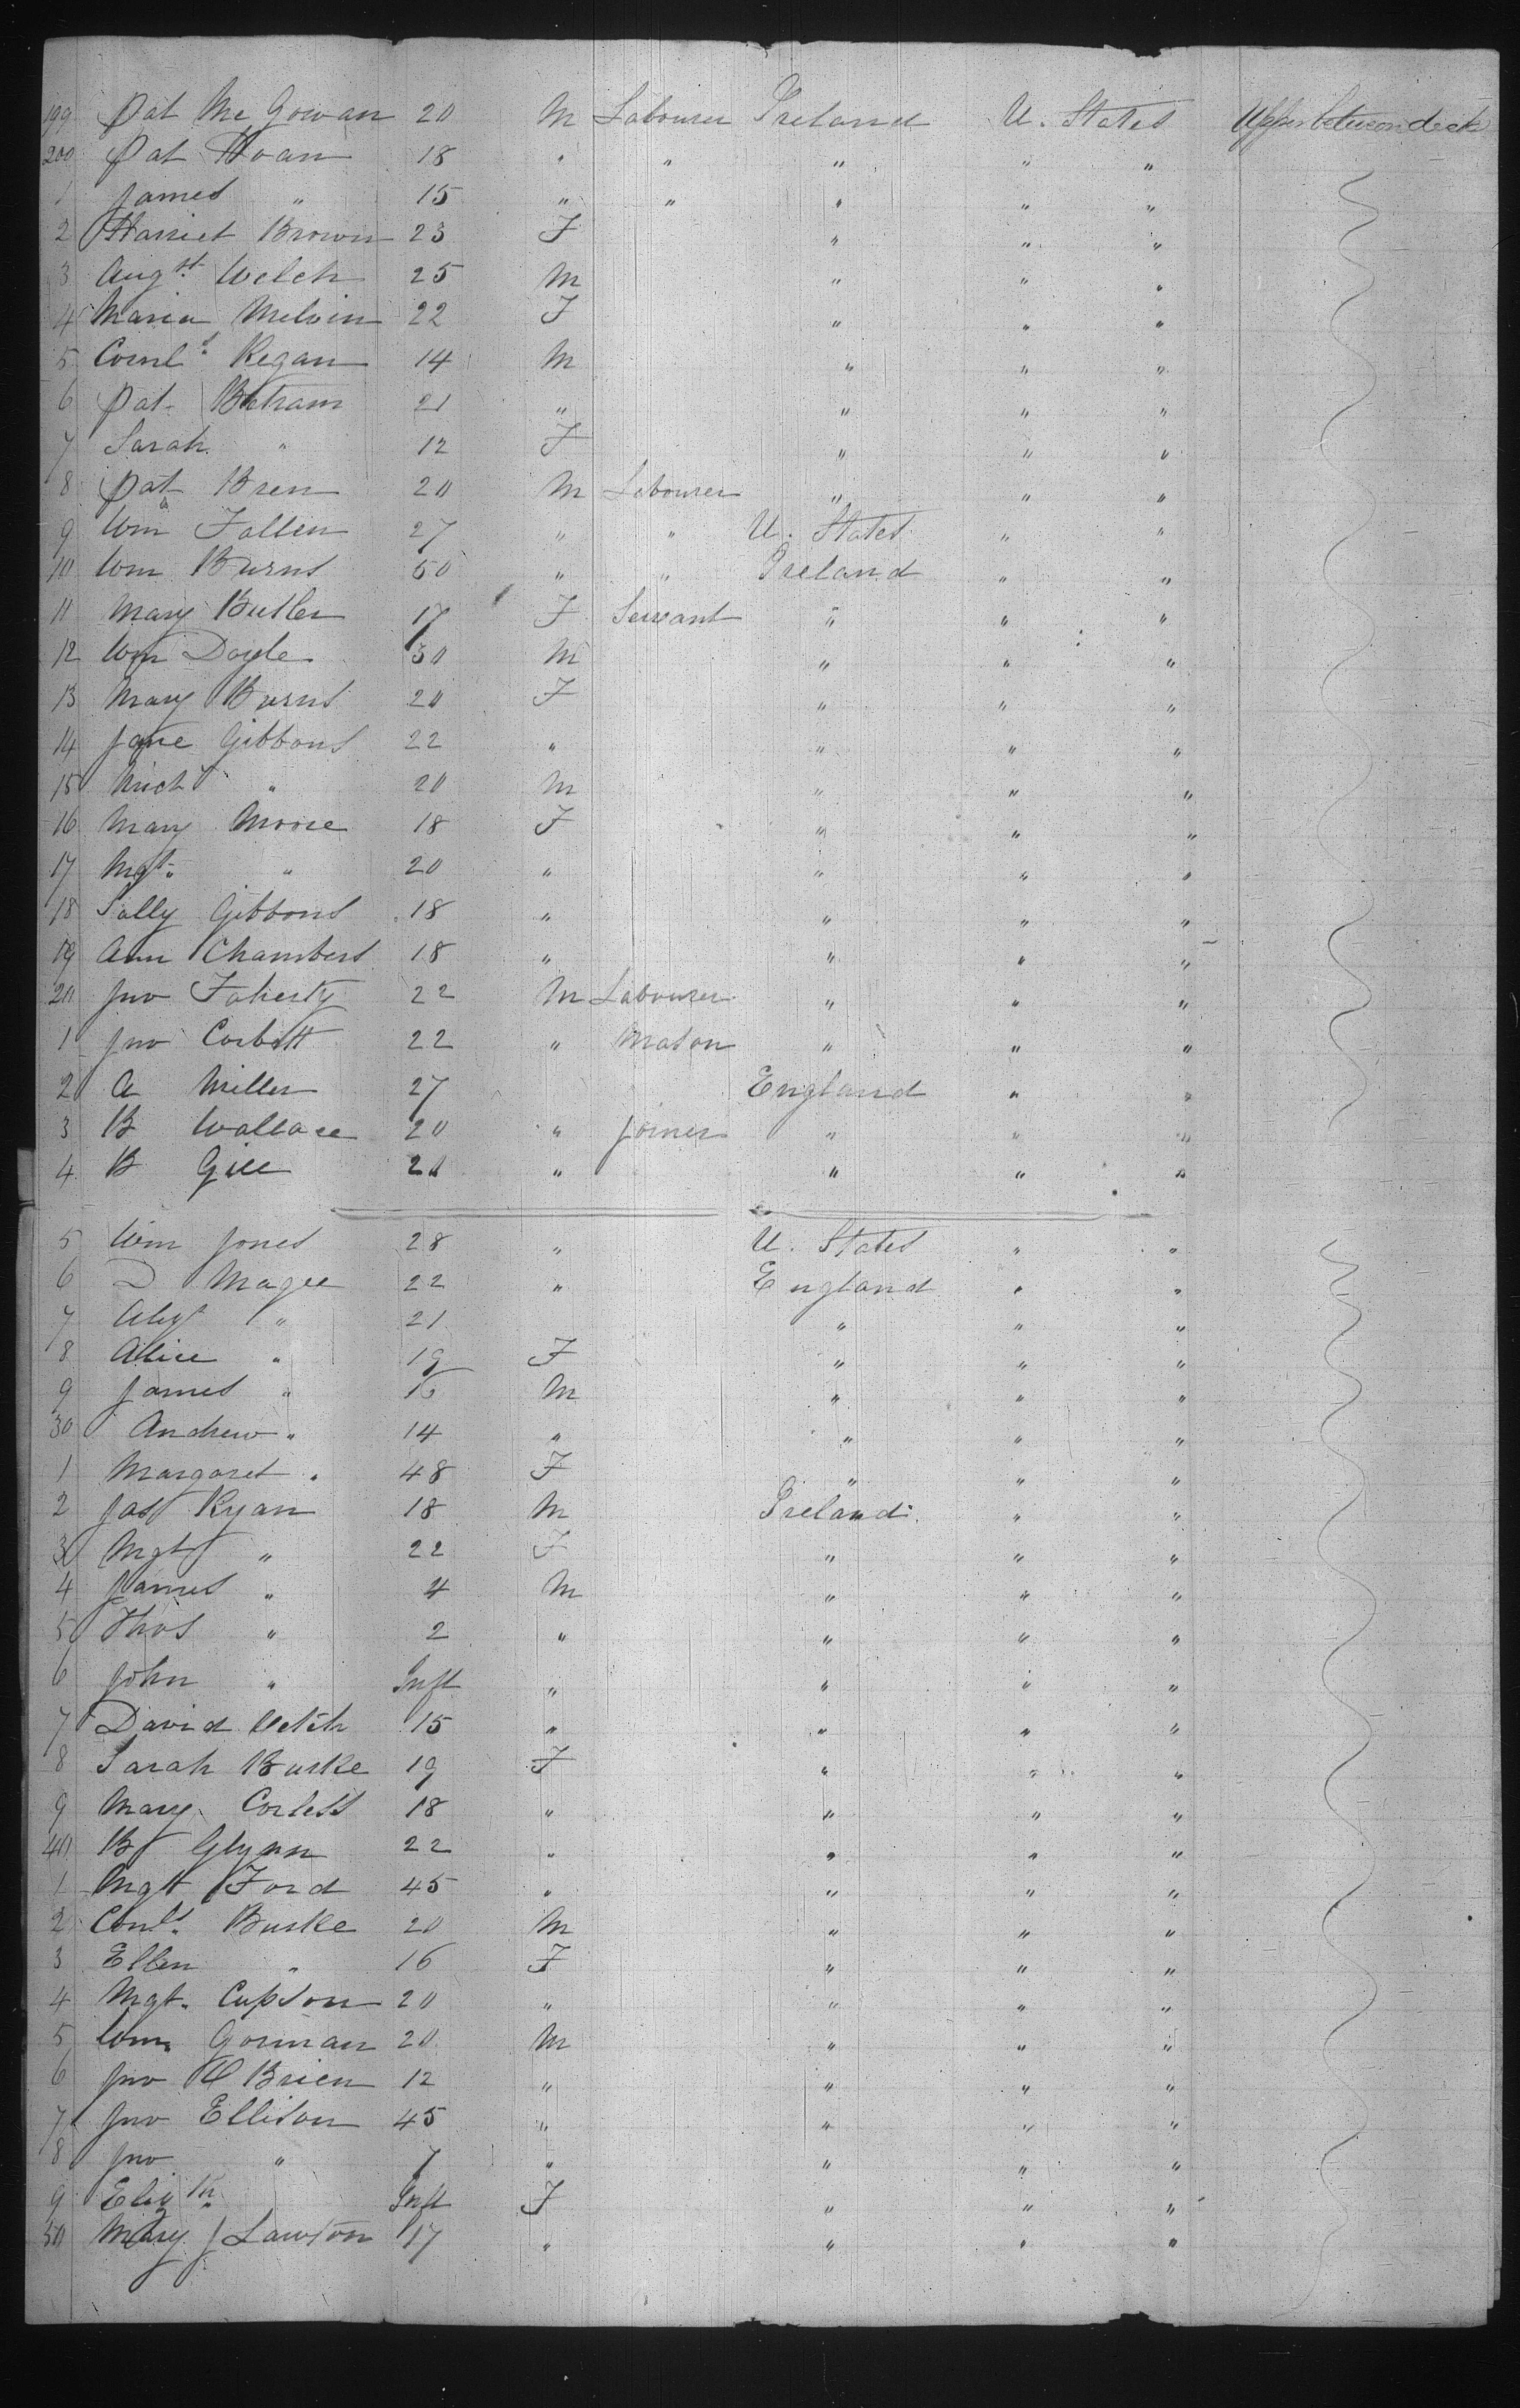 199 Pat Mc Gowan 20 M Labourer Ireland U. States Upper between deck
200 Pat Hoan 18 " " " " "
1 James " 15 " " " " "
2 Harriet Brown 23 F " " "
3 Augst Welch 25 M " " "
4 Maria Melvin 22 F " " "
5 Cornls Regan 14 M " " "
6 Pat 21 " " " "
7 Sarah " 12 F " " "
8 Pat Bren 20 M Labourer " " "
9 Wm Fallen 27 " " U. States " "
10 Wm Burns 50 " " Ireland " "
11 Mary Butler 17 F Servant " " "
12 Wm Doyle 30 M " " "
13 Mary Burns 20 F " " "
14 Jane Gibbons 22 " " " "
15 Michl " 20 M " " "
16 Mary Moore 18 F " " "
17 Mgt. " 20 " " " "
18 Sally Gibbons 18 " " " "
19 Ann Chambers 18 " " " "
20 Jno Faherty 22 M Labourer " " "
1 Jno Corbett 22 " Mason " " "
2 A Miller 27 England " "
3 B Wallace 20 " Joiner " " "
4 B Gill 20 " " " "
5 Wm Jones 28 " U. States " "
6 D Magee 22 " England " "
7 Alexr " 21 " " "
8 Alice " 19 F " " "
9 James " 16 M " " "
30 Andrew " 14 " " " "
1 Margaret " 48 F " " "
2 Jas Ryan 18 M Ireland " "
3 Mgt " 22 F " " "
4 James " 4 M " " "
5 Thos " 2 " " " "
6 John " Inft " " " "
7 David 15 " " " "
8 Sarah Burke 19 F " " "
9 Mary Corless 18 " " " "
40 B Glynn 22 " " " "
1 Mgt Ford 45 " " " "
2 Cornls. Burke 20 M " " "
3 Ellen " 16 F " " "
4 Mgt. Cupson 20 " " " "
5 Wm. Gorman 20 M " " "
6 Jno O Brien 12 " " " "
7 Jno Ellison 45 " " " "
8 Jno " 7 " " " "
9 Elizth " Inft F " " "
50 Mary J Lawton 17 " " " "